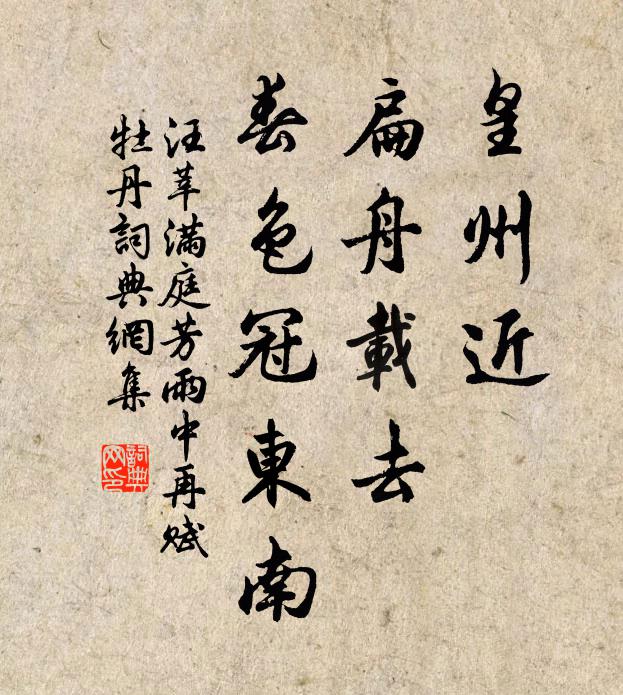 皇州近
扁舟載去
春色冠東南
汪莘滿庭芳雨中再賦
牡丹詞典網集
詞典網印